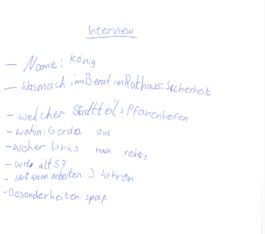 Interview
– Name: König
– Wasmach im Beruf im Rathaus: Sicherheit
– welcher Stadtteil: Pfanenhofen
– wohin: Gerda aus
– woher Links nach rechts
– wie alt 57
– seit wann arbeiten: 3 Jahren
– Besonderheiten: spaß